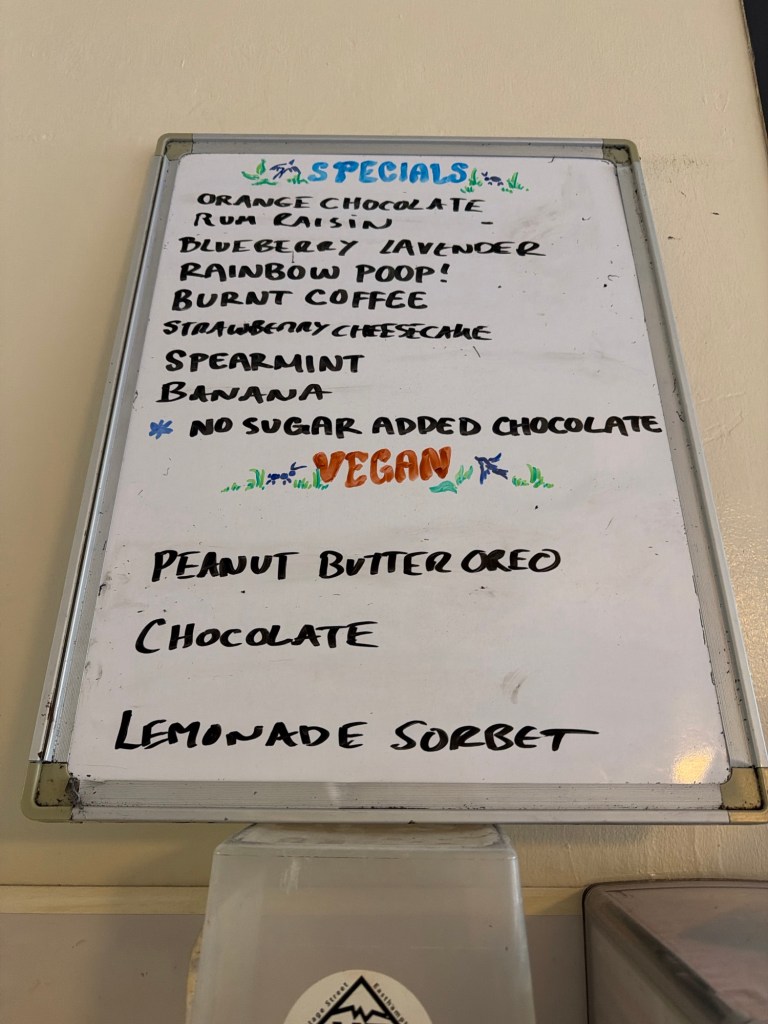 SPECIALS
ORANGE CHOCOLATE
RUM RAISIN -
BLUEBERRY LAVENDER
RAINBOW POOP!
BURNT COFFEE
STRAWBERRY CHEESECAKE
SPEARMINT
BANANA
* NO SUGAR ADDED CHOCOLATE
VEGAN
PEANUT BUTTER OREO
CHOCOLATE
LEMONADE SORBET
Street